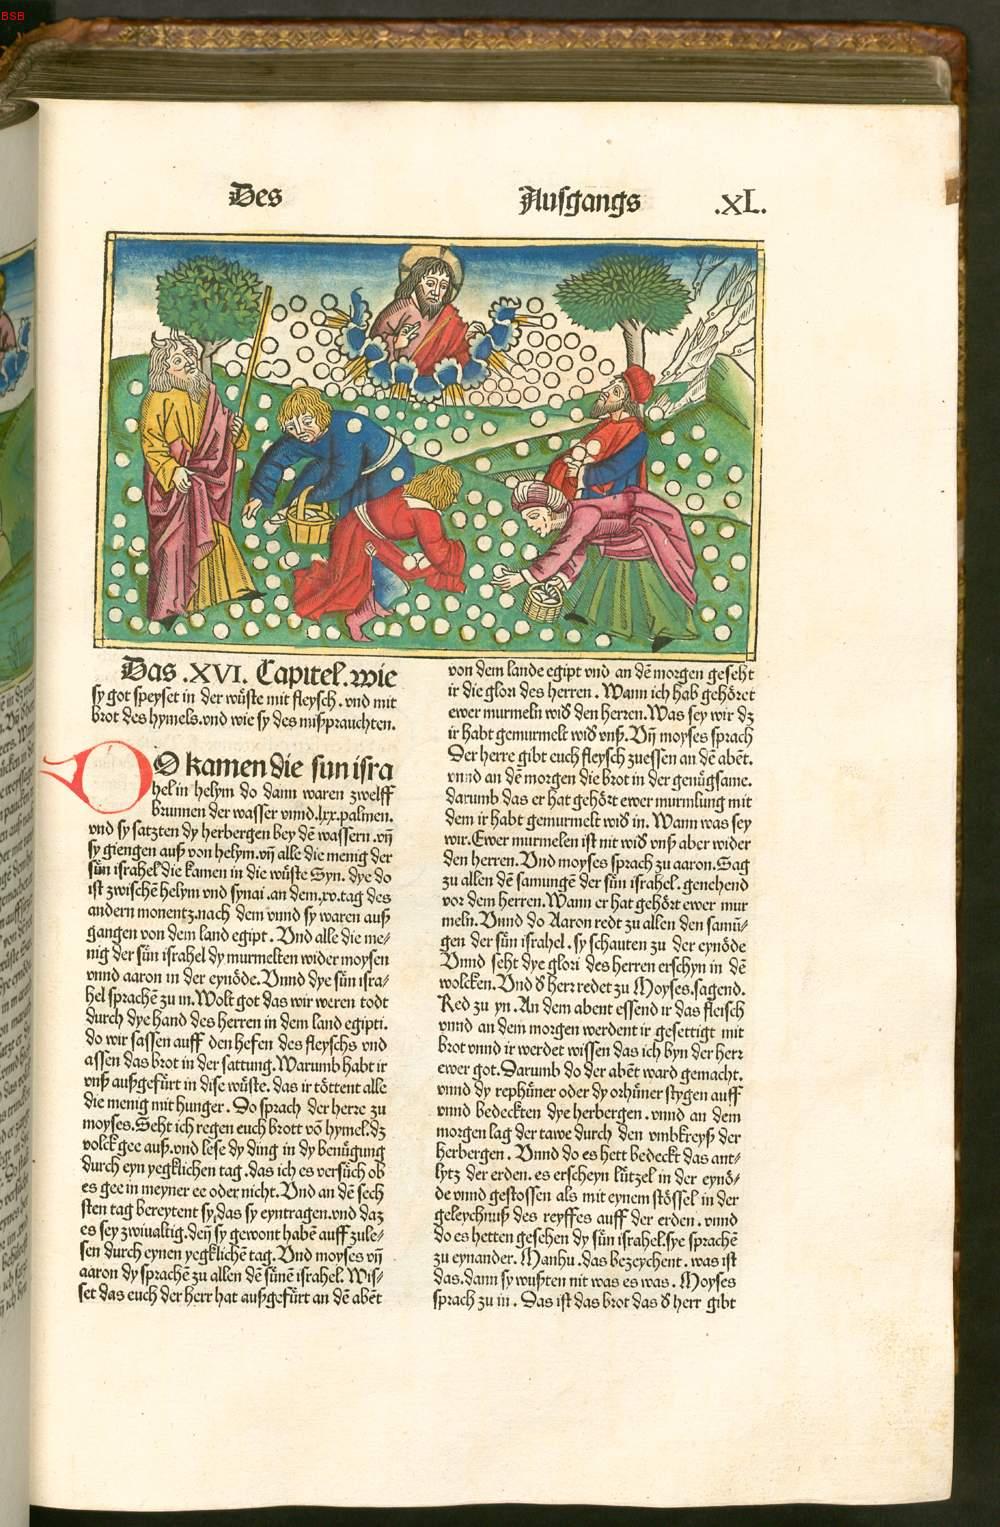 BSB
Des Ausgangs .XL.
Das .XVI. Capitel. wie
sy got speyset in der wůste mit fleysch. vnd mit
brot des hymels. vnd wie sy des mißprauchten.
DO kamen die sun isra
hel in helym do dann waren zwelff
brunnen der wasser vnnd .lxx. palmen.
vnd sy satzten dy herbergen bey dē wassern. vñ
sy giengen auß von helym. vñ alle die menig der
sůn israhel die kamen in die wůste Syn. dye do
ist zwischē helym vnd synai. an dem .xv. tag des
andern monentz. nach dem vnnd sy waren auß
gangen von dem land egipt. Vnd alle die me⸗
nig der sůn israhel dy murmelten wider moysen
vnnd aaron in der eynöde. Vnnd dye sůn isra⸗
hel sprachē zu in. Wolt got das wir weren todt
durch dye hand des herren in dem land egipti.
do wir sassen auff den hefen des fleyschs vnd
assen das brot in der sattung. Warumb habt ir
vnß außgefürt in dise wůste. das ir töttent alle
die menig mit hunger. Do sprach der herre zu
moyses. Seht ich regen euch brott vō hymel. dz
volck gee auß. vnd lese dy ding in dy benůgung
durch eyn yegklichen tag. das ich es versůch ob
es gee in meyner ee oder nicht. Vnd an dē sech
sten tag bereytent sy, das sy eyntragen. vnd daz
es sey zwiualtig. deñ sy gewont habē auff zule⸗
sen durch eynen yegklichē tag. Vnd moyses vñ
aaron dy sprachē zu allen dē sůnē israhel. Wis⸗
set das euch der herr hat außgefürt an dē abēt
von dem lande egipt vnd an dē morgen geseht
ir die glori des herren. Wann ich hab gehöret
ewer murmeln wid den herren. Was sey wir dz
ir habt gemurmelt wid vnß. Vñ moyses sprach
Der herre gibt euch fleysch zuessen an dē abēt.
vnnd an dē morgen die brot in der genůgsame.
darumb das er hat gehört ewer murmlung mit
dem ir habt gemurmelt wid in. Wann was sey
wir. Ewer murmelen ist nit wid vnß aber wider
den herren. Vnd moyses sprach zu aaron. Sag
zu allen dē samungē der sůn israhel. genehend
vor dem herren. Wann er hat gehört ewer mur
meln. Vnnd do Aaron redt zu allen den samū⸗
gen der sůn israhel. sy schauten zu der eynöde
Vnnd seht dye glori des herren erschyn in dē
wolcken. Vnd d herr redet zu Moyses. sagend.
Red zu yn. An dem abent essend ir das fleisch
vnnd an dem morgen werdent ir gesettigt mit
brot vnnd ir werdet wissen das ich byn der herr
ewer got. Darumb do der abēt ward gemacht.
vnnd dy rephůner oder dy orhůner stygen auff
vnnd bedeckten dye herbergen. vnnd an dem
morgen lag der tawe durch den vmbkreyß der
herbergen. Vnnd do es hett bedeckt das ant⸗
lytz der erden. es erscheyn lůtzel in der eynö⸗
de vnnd gestossen als mit eynem stössel in der
geleychnuß des reyffes auff der erden. vnnd
do es hetten gesehen dy sůn israhel. sye sprachē
zu eynander. Manhu. das bezeychent. was ist
das. dann sy wußten nit was es was. Moyses
sprach zu in. Das ist das brot das d herr gibt